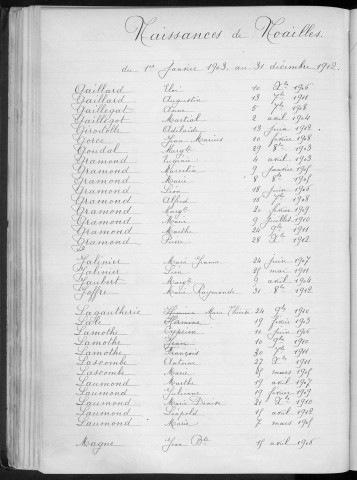 Naissances de Noailles.
du 1er Janvier 1903 au 31 décembre 1912.
Gaillard Eloi 10 Xbre 1906
Gaillard Augustin 13 7bre 1911
Gaillegot 5 7bre 1908
Gaillegot Martial 2 avril 1904
Girodolle Adelaïde 13 Juin 1912
Gorce Jean Marius 10 février 1908
Goudal Margte 29 8bre 1903
Gramond Eugène 4 avril 1903
Gramond 9 Janvier 1905
Gramond Marie 8 8bre 1905
Gramond Léon 18 Juin 1906
Gramond Alfred 16 7bre 1908
Gramond Margte 20 février 1909
Gramond Marie 9 Juillet 1910
Gramond Marthe 24 9bre 1911
Gramond Pierre 28 Xbre 1912
Jalinier Marie Jeanne 24 Juin 1907
Jalinier Léon 25 mai 1911
Jaubert Margte 9 avril 1904
Joffre Marie Raymonde 31 8bre 1912
Lagautherie Marie 24 9bre 1910
19 février 1903
Lamothe Cyprien 10 Juin 1906
Lamothe Jean 10 9bre 1910
Lamothe François 30 7bre 1911
Lascombe Antoine 27 Xbre 1911
Lascombe Marie 15 mars 1905
Laumond Marthe 19 avril 1907
Laumond Julienne 19 février 1909
Laumond Marie 21 Xbre 1910
Laumond Léopold 15 avril 1912
Laumond Marie 7 mars 1905
Magne Jean Bte 15 avril 1906